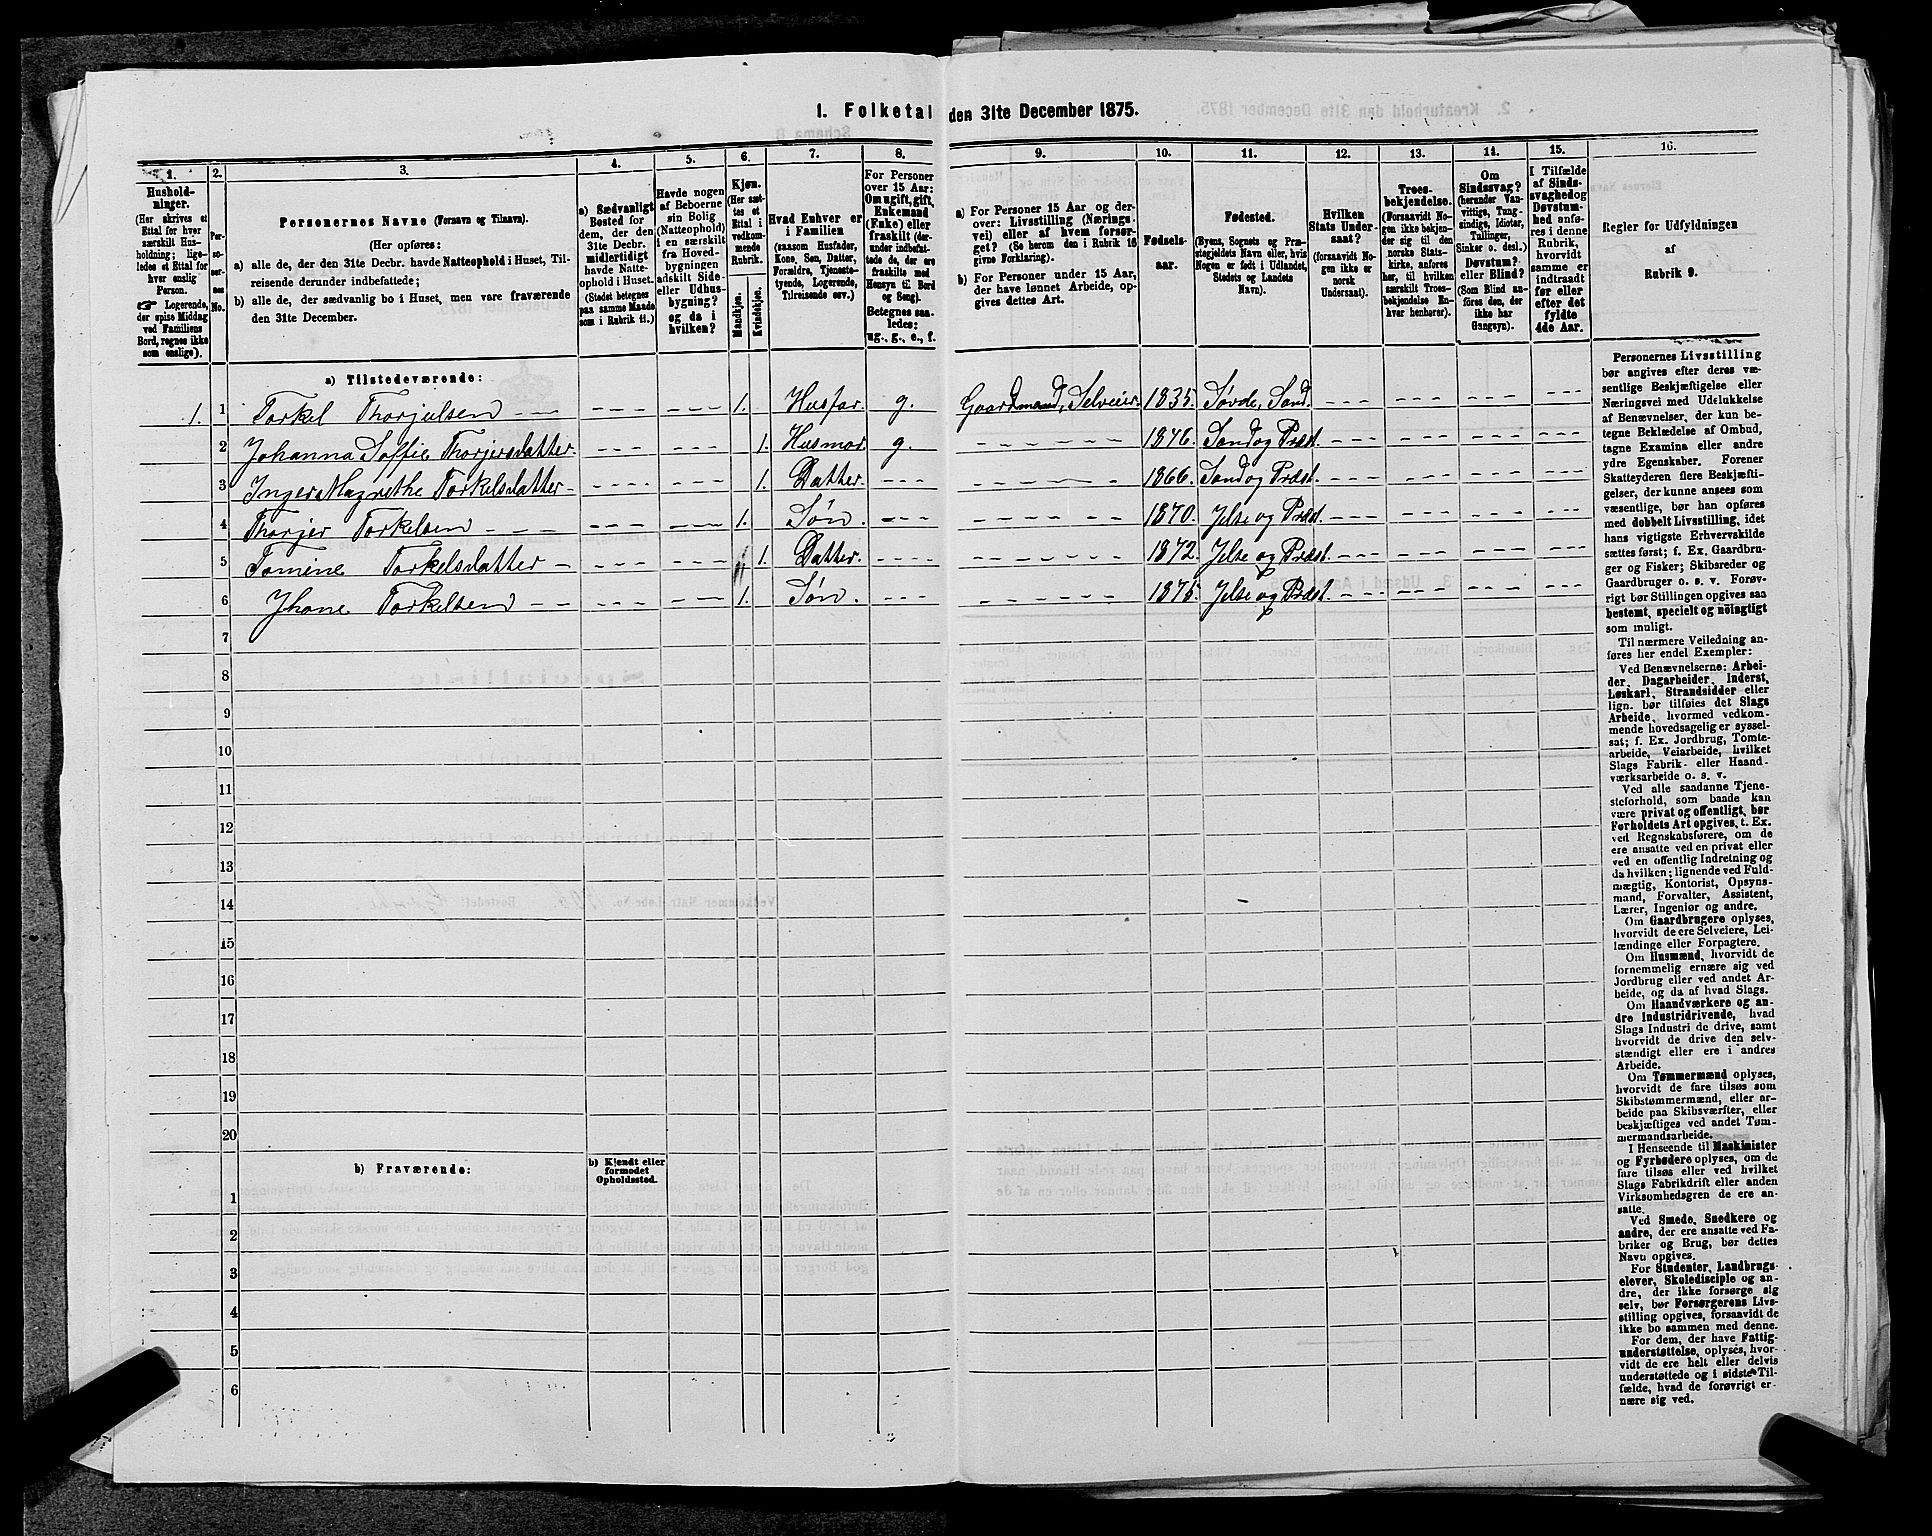 1. Folketal den 31te December 1875.
1.
2.
3.
4.
5.
6.
7.
8.
9.
10.
11.
12.
13.
14.
15.
16.
Hushold-
ninger.
(Her skrives et
Ettal for hver
særskilt Hus-
holdning; lige-
ledes et Ettal for
hver enslig
Person.
☞ Logerende,
der spise Middag
ved Familiens
Bord, regnes ikke
som enslige).
Per-
so-
ner-
nes
No.
Personernes Navne (Fornavn og Tilnavn).
(Her opføres:
a) alle de, der den 31te Decbr. havde Natteophold i Huset, Til-
reisende derunder indbefattede;
b) alle de, der sædvanlig bo i Huset, men vare fraværende
den 31te December.
a) Sædvanligt
Bosted for
dem, der den
31te Decbr.
midlertidigt
havde Natte-
ophold i Huset.
(Stedet betegnes
paa samme Maade
som i Rubrik 11.)
Havde nogen
af Beboerne
sin Bolig
(Natteophold)
i en særskilt
fra Hoved-
bygningen
adskilt Side-
eller Udhus-
bygning?
og da i
hvilken?
Kjøn.
(Her sæt-
tes et
Ettal i
vedkom-
mende
Rubrik.
Mandkjøn.
Kvindekjøn.
Hvad Enhver er
i Familien
(saasom Husfader,
Kone, Søn, Datter,
Forældre, Tjeneste-
tyende, Logerende,
Tilreisende osv.)
For Personer
over 15 Aar:
Om ugift, gift,
Enkemand
(Enke) eller
fraskilt (der-
under indbefat-
tede de, der ere
fraskilte med
Hensyn til Bord
og Seng).
Betegnes saa-
ledes:
ug., g., e., f.
a) For Personer 15 Aar og der-
over: Livsstilling (Nærings-
vei) eller af hvem forsør-
get? (Se herom den i Rubrik 16
givne Forklaring).
b) For Personer under 15 Aar,
der have lønnet Arbeide, op-
gives dettes Art.
Fødsels-
aar.
Fødested.
(Byens, Sognets og Præ-
stegjeldets Navn eller, hvis
Nogen er født i Udlandet,
Stedets og Landets
Navn).
Hvilken
Stats Under-
saat?
(forsaavidt No-
gen ikke er
norsk
Undersaat).
Troes-
bekjendelse.
(Forsaavidt No-
gen ikke bekjen-
der sig til den
norske Stats-
kirke, anføres
her, til hvilken
særskilt Troes-
bekjendelse En-
hver henhører).
Om
Sindssvag?
(herunder Van-
vittige, Tung-
sindige, Idioter,
Tullinger,
Sinker o. desl.)
Døvstum?
eller Blind?
(Som Blind an-
føres den, der
ikke har
Gangsyn).
I Tilfælde
af Sinds-
svaghed og
Døvstum-
hed anfø-
res i denne
Rubrik,
hvorvidt
samme er
indtraadt
før eller
efter det
fyldte
4de Aar.
Regler for Udfyldningen
af
Rubrik 9.
a) Tilstedeværende:
1. 1 Torkel Thorjulsen 1. Husfar g. Gaardmand, Selveier. 1835. Søvde, Sand.
2 Johanna Soffie Thorjersdatter. 1. Husmor g. 1846. Sand og Præst.
3 Inger Magrethe Torkelsdatter 1. Datter. 1866. Sand og Præst.
4 Thorjer Torkelsen 1. Søn. 1870. Jelse og Præst.
5 Tomene Torkelsdatter 1. Datter. 1872. Jelse og Præst.
6 Jhone Torkelsen 1. Søn. 1875. Jelse og Præst.
7
8
9
10
11
12
13
14
15
16
17
18
19
20
b) Fraværende:
b) Kjendt eller
formodet
Opholdssted.
1
2
3
4
5
6
Personernes Livsstilling
bør angives efter deres væ-
sentlige Beskjæftigelse eller
Næringsvei med Udelukkelse
af Benævnelser, der kun be-
tegne Beklædelse af Ombud,
tagne Examina eller andre
ydre Egenskaber. Forener
Skatteyderen flere Beskjæfti-
gelser, der kunne ansees som
væsentlige, bør han opføres
med dobbelt Livsstilling, idet
hans vigtigste Erhvervskilde
sættes først; f. Ex. Gaardbru-
ger og Fisker; Skibsreder og
Gaardbruger o. s. v. Forøv-
rigt bør Stillingen opgives saa
bestemt, specielt og nöiagtigt
som muligt.
Til nærmere Veiledning an-
føres her endel Exempler:
Ved Benævnelserne: Arbei-
der, Dagarbeider, Inderst,
Løskarl, Strandsidder eller
lign. bør tilføies det Slags
Arbeide, hvormed vedkom-
mende hovedsagelig er syssel-
sat; f. Ex. Jordbrug, Tomte-
arbeide, Veiarbeide, hvilket
Slags Fabrik- eller Haand-
værksarbeide o. s. v.
Ved alle saadanne Tjene-
steforhold, som baade kan
være privat og offentligt, bør
Forholdets Art opgives, t. Ex.
ved Regnskabsførere, om de
ere ansatte ved en privat eller
ved en offentlig Indretning og
da hvilken; lignende ved Fuld-
mægtig, Kontorist, Opsyns-
mand, Forvalter, Assistent,
Lærer, Ingeniør og andre.
Om Gaardbrugere oplyses,
hvorvidt de ere Selveiere, Lei-
lændinge eller Forpagtere.
Om Husmænd, hvorvidt de
fornemmelig ernære sig ved
Jordbrug eller ved andet Ar-
beide, og da af hvad Slags.
Om Haandværkere og an-
dre Industridrivende, hvad
Slags Industri de drive, samt
hvorvidt de drive den selv-
stændigt eller ere i andres
Arbeide.
Om Tømmermænd oplyses,
hvorvidt de fare tilsøs som
Skibstømmermænd, eller ar-
beide paa Skibsværfter, eller
beskjæftiges ved andet Tøm-
mermandsarbeide.
I Henseende til Maskinister
og Fyrbødere oplyses, om de
fare tilsøs eller ved hvilket
Slags Fabrikdrift eller anden
Virksomhedsgren de ere an-
satte.
Ved Smede, Snedkere og
andre, der ere ansatte ved Fa-
briker og Brug, bør dettes
Navn opgives.
For Studenter, Landbrugs-
elever, Skoledisciple og an-
dre, der ikke forsørge sig
selv, bør Forsørgerens Livs-
stilling opgives, forsaavidt de
ikke bo sammen med denne.
For dem, der have Fattig-
understøttelse, oplyses, hvor-
vidt de ere helt eller delvis
understøttede og i sidste Til-
fælde, hvad de forøvrigt er-
nære sig ved.